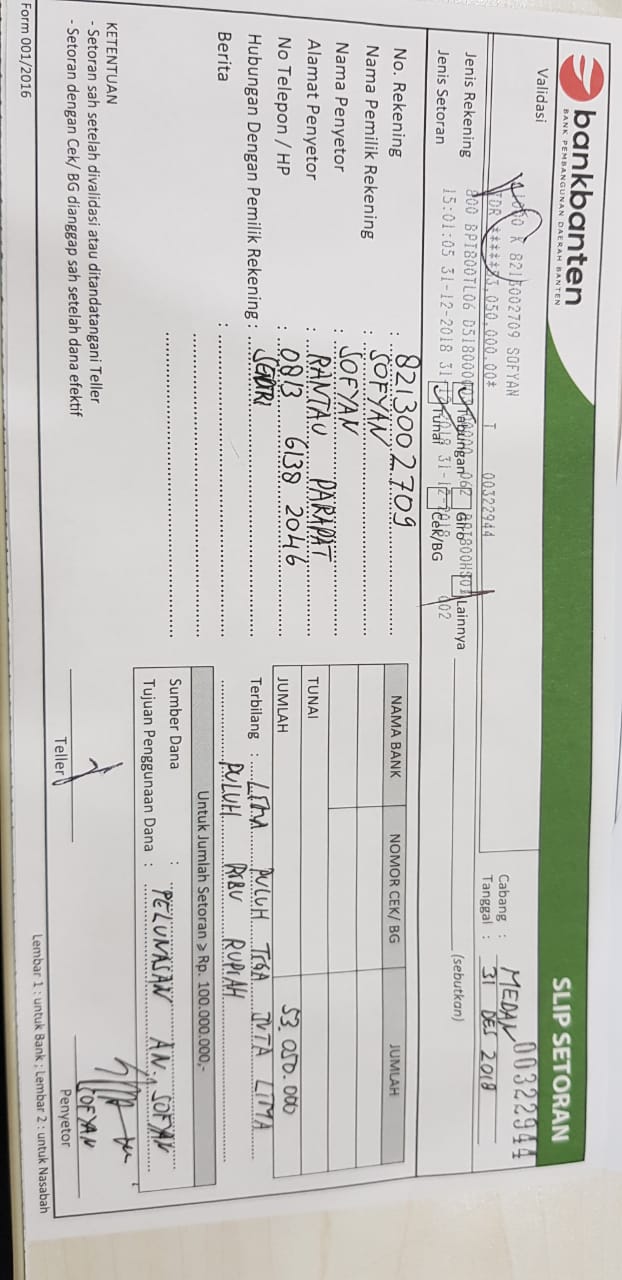 bankbanten
BANK PEMBANGUNAN DAERAH BANTEN
SLIP SETORAN
Validasi
K 8213002709 SOFYAN
TDR ******53,050,000.00* T 00322944
00322944
Cabang : MEDAN
Tanggal : 31 DES 2018
800 BPI800TL06
15:01:05 31-12-2018
Jenis Rekening Tabungan Giro Lainnya (sebutkan)
Jenis Setoran Tunai Cek/BG
No. Rekening : 8213002709
Nama Pemilik Rekening : SOFYAN
Nama Penyetor : SOFYAN
Alamat Penyetor : RANTAU PARAPAT
No Telepon / HP : 0813 6138 2046
Hubungan Dengan Pemilik Rekening : SENDIRI
Berita :
NAMA BANK NOMOR CEK/ BG JUMLAH
TUNAI
JUMLAH 53.050.000
Terbilang : LIMA PULUH TIGA JUTA LIMA
PULUH RIBU RUPIAH
Untuk Jumlah Setoran ≥ Rp. 100.000.000,-
Sumber Dana :
Tujuan Penggunaan Dana : PELUNASAN AN. SOFYAN
KETENTUAN
- Setoran sah setelah divalidasi atau ditandatangani Teller
- Setoran dengan Cek/ BG dianggap sah setelah dana efektif
Teller
SOFYAN
Penyetor
Form 001/2016
Lembar 1 : untuk Bank ; Lembar 2 : untuk Nasabah